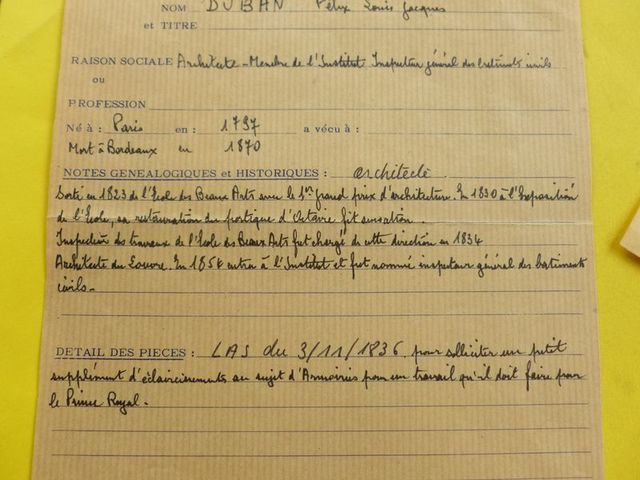 NOM DUBAN Félix Louis Jacques
et TITRE
RAISON SOCIALE Architecte - Membre de l'Institut Inspecteur général des bâtiments civils
ou
PROFESSION
Né à : Paris en : 1797 a vécu à :
Mort à Bordeaux en 1870
NOTES GENEALOGIQUES et HISTORIQUES : architecte
Sorti en 1823 de l'Ecole des Beaux Arts avec le 1er grand prix d'architecture. En 1830 à l'Exposition
de l'Ecole, sa restauration du portique d'Octavie fit sensation.
Inspecteur des travaux de l'Ecole des Beaux Arts fut chargé de cette direction en 1834
Architecte du Louvre. En 1854 entra à l'Institut et fut nommé inspecteur général des bâtiments
civils.
DETAIL DES PIECES : LAS du 3/11/1836, pour solliciter un petit
supplément d'éclaircissements au sujet d'Armoiries pour un travail qu'il doit faire pour
le Prince Royal.